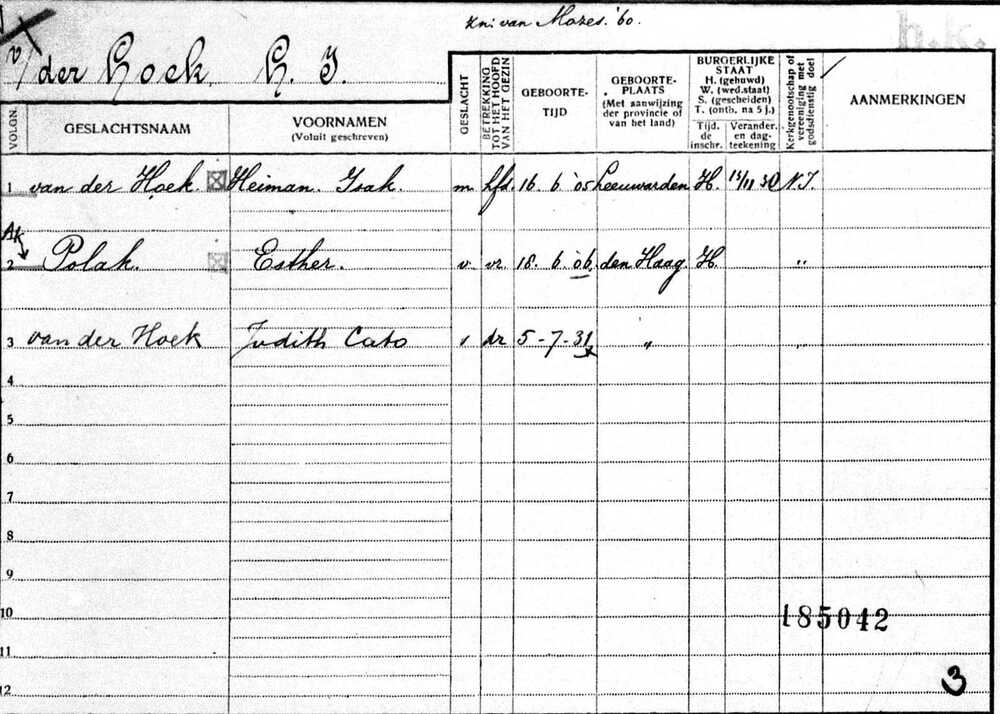 kn: van Mozes. '60.
h.k.
v/ der Hoek H. I.
VOLGN.
GESLACHTSNAAM
VOORNAMEN
(Voluit geschreven)
GESLACHT
BETREKKING TOT HET HOOFD VAN HET GEZIN
GEBOORTE-
TIJD
GEBOORTE-
PLAATS
(Met aanwijzing
der provincie of
van het land)
BURGERLIJKE
STAAT
H. (gehuwd)
W. (wed.staat)
S. (gescheiden)
T. (ontb. na 5 j.)
Tijd. de inschr.
Verander. en dag-teekening
Kerkgenootschap of vereeniging met godsdienstig doel
AANMERKINGEN
1 van der Hoek. Heiman. Isak. m. hfd. 16. 6. '05 Leeuwarden H. 15/11 30 N.I.
Ak
2 Polak. Esther. v. vr. 18. 6. 06. den Haag. H. "
3 van der Hoek Judith Cato v dr 5-7-31 " "
4
5
6
7
8
9
10
185042
11
12
3